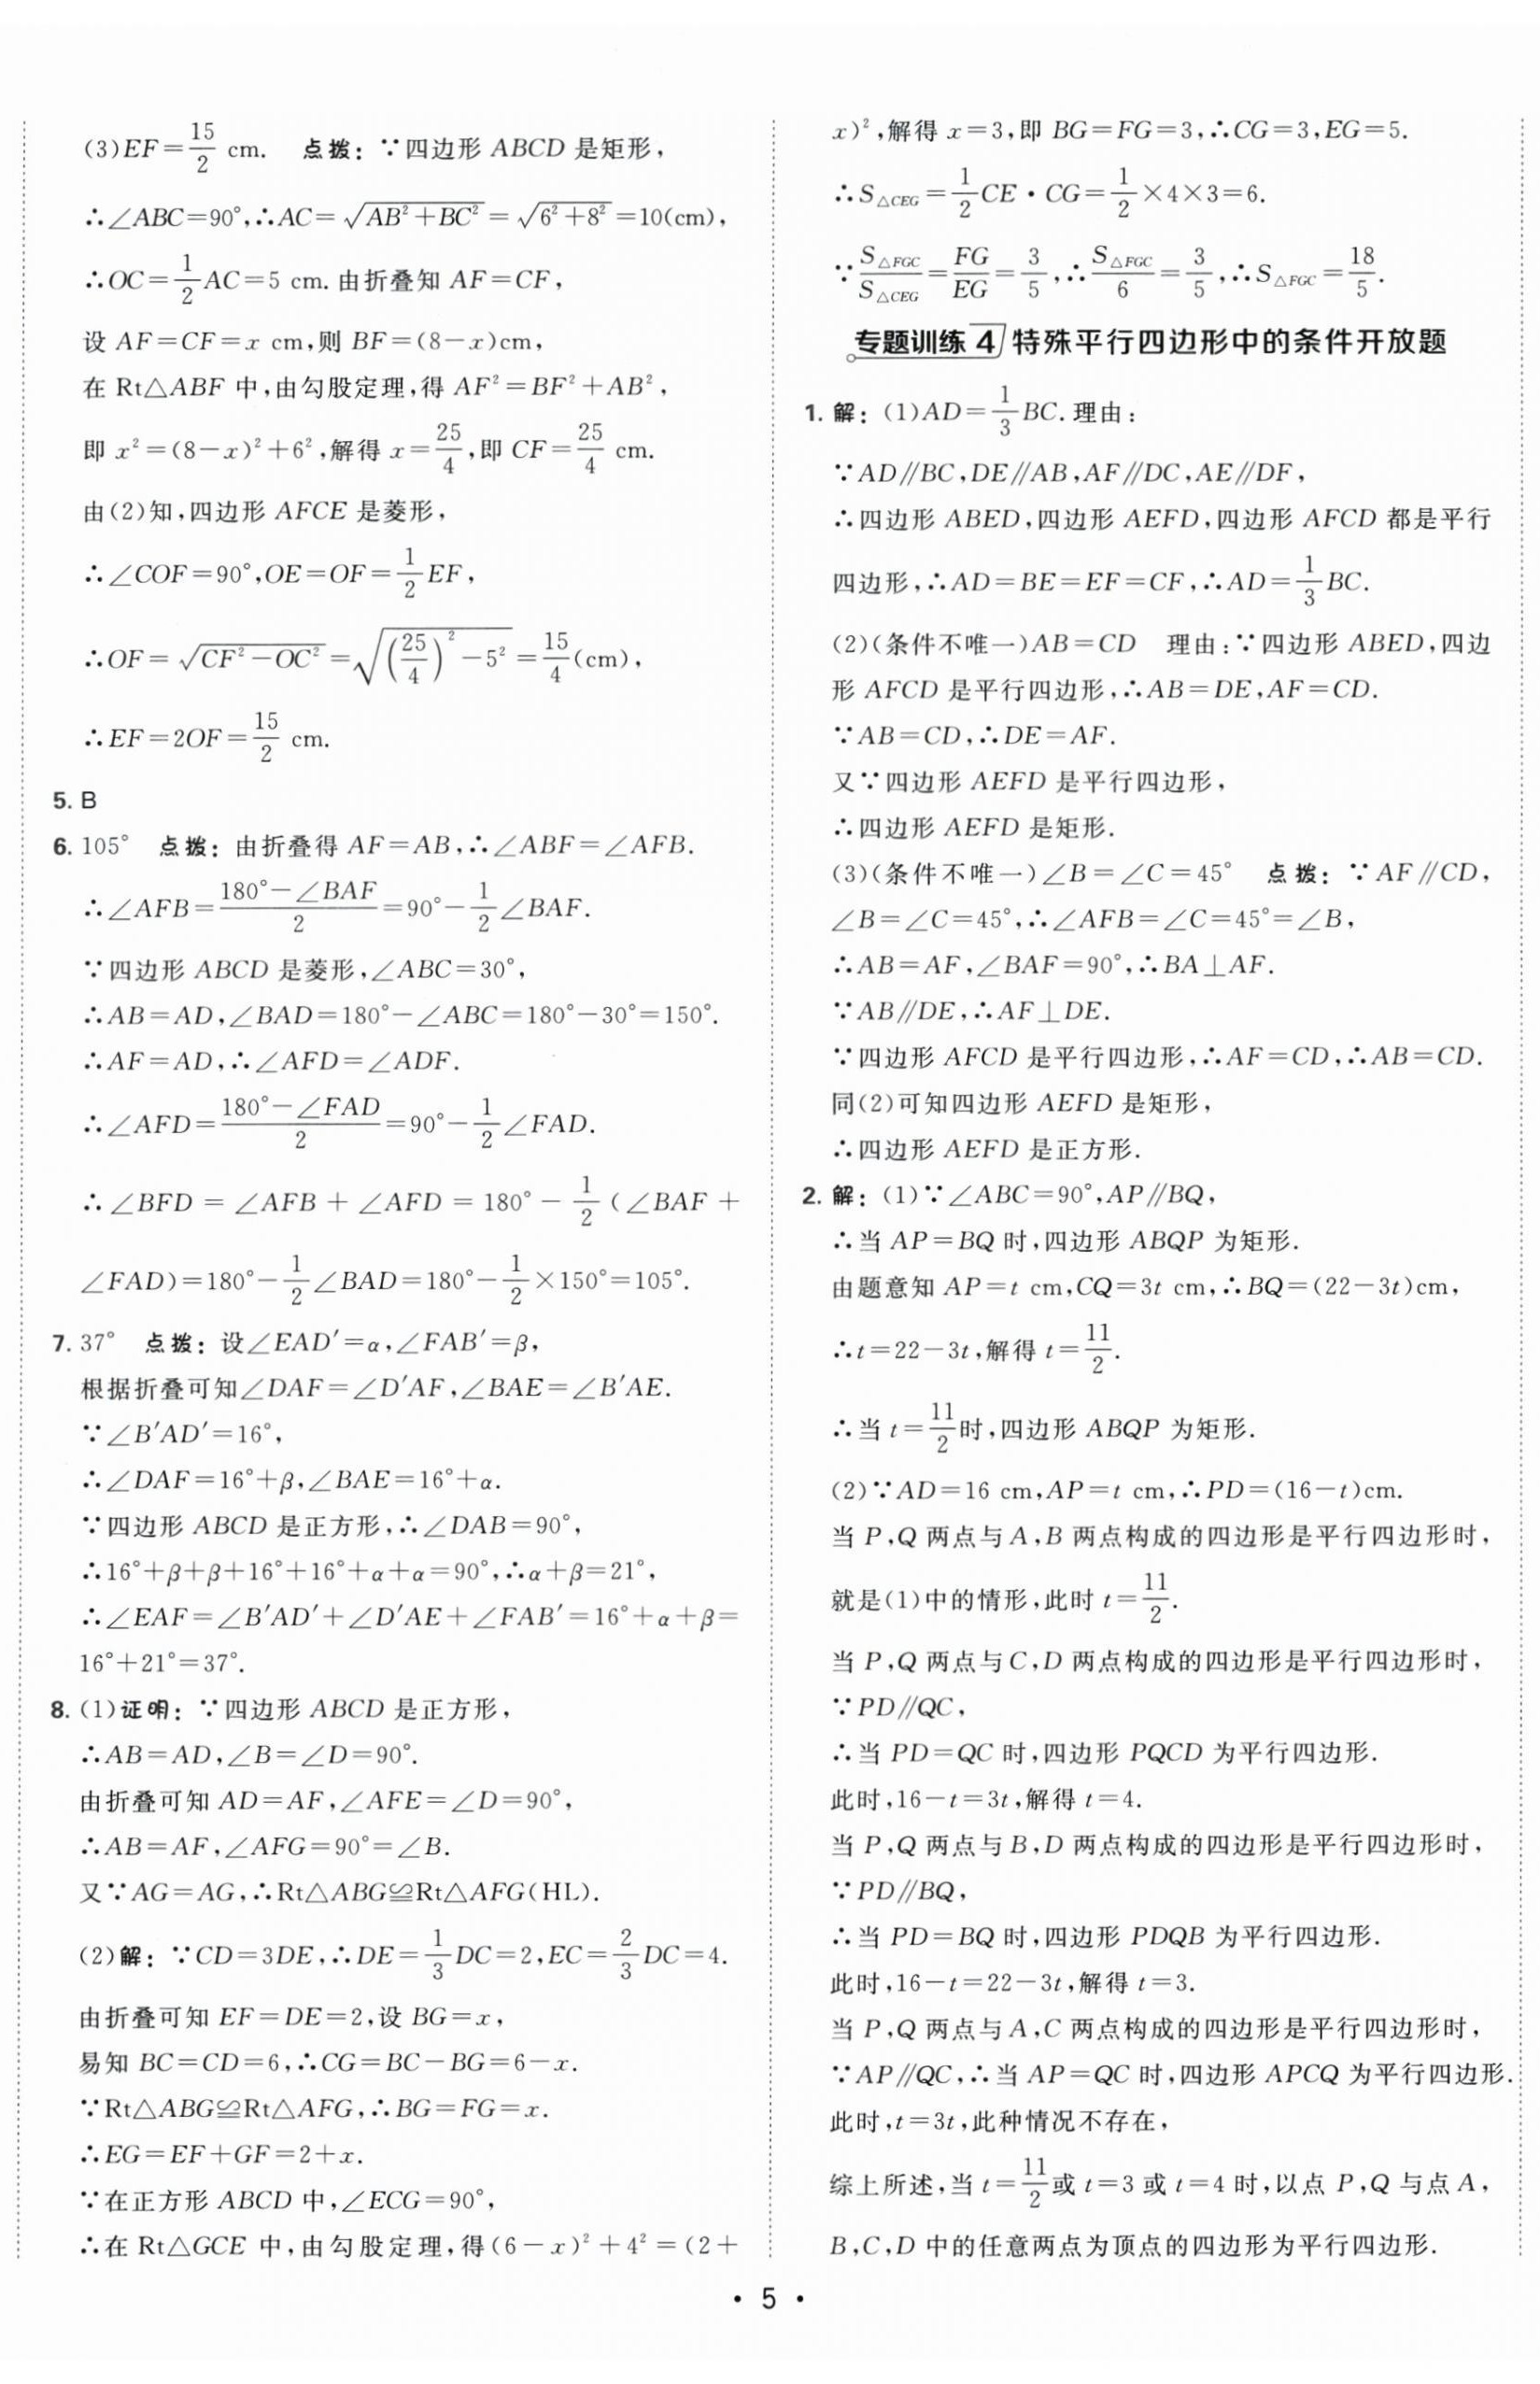 (3)EF=15/2 cm. 点拨：∵四边形 ABCD 是矩形，
∴∠ABC=90°,∴AC=√(AB²+BC²)=√(6²+8²)=10(cm),
∴OC=1/2 AC=5 cm. 由折叠知 AF=CF,
设 AF=CF=x cm,则 BF=(8-x)cm,
在 Rt△ABF 中,由勾股定理,得 AF²=BF²+AB²,
即 x²=(8-x)²+6²,解得 x=25/4,即 CF=25/4 cm.
由(2)知,四边形 AFCE 是菱形,
∴∠COF=90°,OE=OF=1/2 EF,
∴OF=√(CF²-OC²)=√((25/4)²-5²)=15/4(cm),
∴EF=2OF=15/2 cm.
5. B
6. 105° 点拨：由折叠得 AF=AB,∴∠ABF=∠AFB.
∴∠AFB=(180°-∠BAF)/2=90°-1/2∠BAF.
∵四边形 ABCD 是菱形,∠ABC=30°,
∴AB=AD,∠BAD=180°-∠ABC=180°-30°=150°.
∴AF=AD,∴∠AFD=∠ADF.
∴∠AFD=(180°-∠FAD)/2=90°-1/2∠FAD.
∴∠BFD=∠AFB+∠AFD=180°-1/2(∠BAF+
∠FAD)=180°-1/2∠BAD=180°-1/2×150°=105°.
7. 37° 点拨：设∠EAD′=α,∠FAB′=β,
根据折叠可知∠DAF=∠D′AF,∠BAE=∠B′AE.
∵∠B′AD′=16°,
∴∠DAF=16°+β,∠BAE=16°+α.
∵四边形 ABCD 是正方形,∴∠DAB=90°,
∴16°+β+β+16°+16°+α+α=90°,∴α+β=21°,
∴∠EAF=∠B′AD′+∠D′AE+∠FAB′=16°+α+β=
16°+21°=37°.
8. (1)证明：∵四边形 ABCD 是正方形,
∴AB=AD,∠B=∠D=90°.
由折叠可知 AD=AF,∠AFE=∠D=90°,
∴AB=AF,∠AFG=90°=∠B.
又∵AG=AG,∴Rt△ABG≌Rt△AFG(HL).
(2)解：∵CD=3DE,∴DE=1/3 DC=2,EC=2/3 DC=4.
由折叠可知 EF=DE=2,设 BG=x,
易知 BC=CD=6,∴CG=BC-BG=6-x.
∵Rt△ABG≌Rt△AFG,∴BG=FG=x.
∴EG=EF+GF=2+x.
∵在正方形 ABCD 中,∠ECG=90°,
∴在 Rt△GCE 中,由勾股定理,得(6-x)²+4²=(2+
x)²,解得 x=3,即 BG=FG=3,∴CG=3,EG=5.
∴S△CEG=1/2 CE·CG=1/2×4×3=6.
∵S△FGC/S△CEG=FG/EG=3/5,∴S△FGC/6=3/5,∴S△FGC=18/5.
专题训练 4 特殊平行四边形中的条件开放题
1. 解：(1)AD=1/3 BC. 理由：
∵AD∥BC,DE∥AB,AF∥DC,AE∥DF,
∴四边形 ABED,四边形 AEFD,四边形 AFCD 都是平行
四边形,∴AD=BE=EF=CF,∴AD=1/3 BC.
(2)(条件不唯一)AB=CD 理由：∵四边形 ABED,四边
形 AFCD 是平行四边形,∴AB=DE,AF=CD.
∵AB=CD,∴DE=AF.
又∵四边形 AEFD 是平行四边形,
∴四边形 AEFD 是矩形.
(3)(条件不唯一)∠B=∠C=45° 点拨：∵AF∥CD,
∠B=∠C=45°,∴∠AFB=∠C=45°=∠B,
∴AB=AF,∠BAF=90°,∴BA⊥AF.
∵AB∥DE,∴AF⊥DE.
∵四边形 AFCD 是平行四边形,∴AF=CD,∴AB=CD.
同(2)可知四边形 AEFD 是矩形,
∴四边形 AEFD 是正方形.
2. 解：(1)∵∠ABC=90°,AP∥BQ,
∴当 AP=BQ 时,四边形 ABQP 为矩形.
由题意知 AP=t cm,CQ=3t cm,∴BQ=(22-3t)cm,
∴t=22-3t,解得 t=11/2.
∴当 t=11/2时,四边形 ABQP 为矩形.
(2)∵AD=16 cm,AP=t cm,∴PD=(16-t)cm.
当 P,Q 两点与 A,B 两点构成的四边形是平行四边形时,
就是(1)中的情形,此时 t=11/2.
当 P,Q 两点与 C,D 两点构成的四边形是平行四边形时,
∵PD∥QC,
∴当 PD=QC 时,四边形 PQCD 为平行四边形.
此时,16-t=3t,解得 t=4.
当 P,Q 两点与 B,D 两点构成的四边形是平行四边形时,
∵PD∥BQ,
∴当 PD=BQ 时,四边形 PDQB 为平行四边形.
此时,16-t=22-3t,解得 t=3.
当 P,Q 两点与 A,C 两点构成的四边形是平行四边形时,
∵AP∥QC,∴当 AP=QC 时,四边形 APCQ 为平行四边形.
此时,t=3t,此种情况不存在,
综上所述,当 t=11/2或 t=3 或 t=4 时,以点 P,Q 与点 A,
B,C,D 中的任意两点为顶点的四边形为平行四边形.
• 5 •